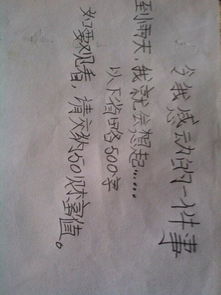 令我感动的一件事
到雨天，我就会想起……
以下省略500字
如要观看，请交纳50财富值。